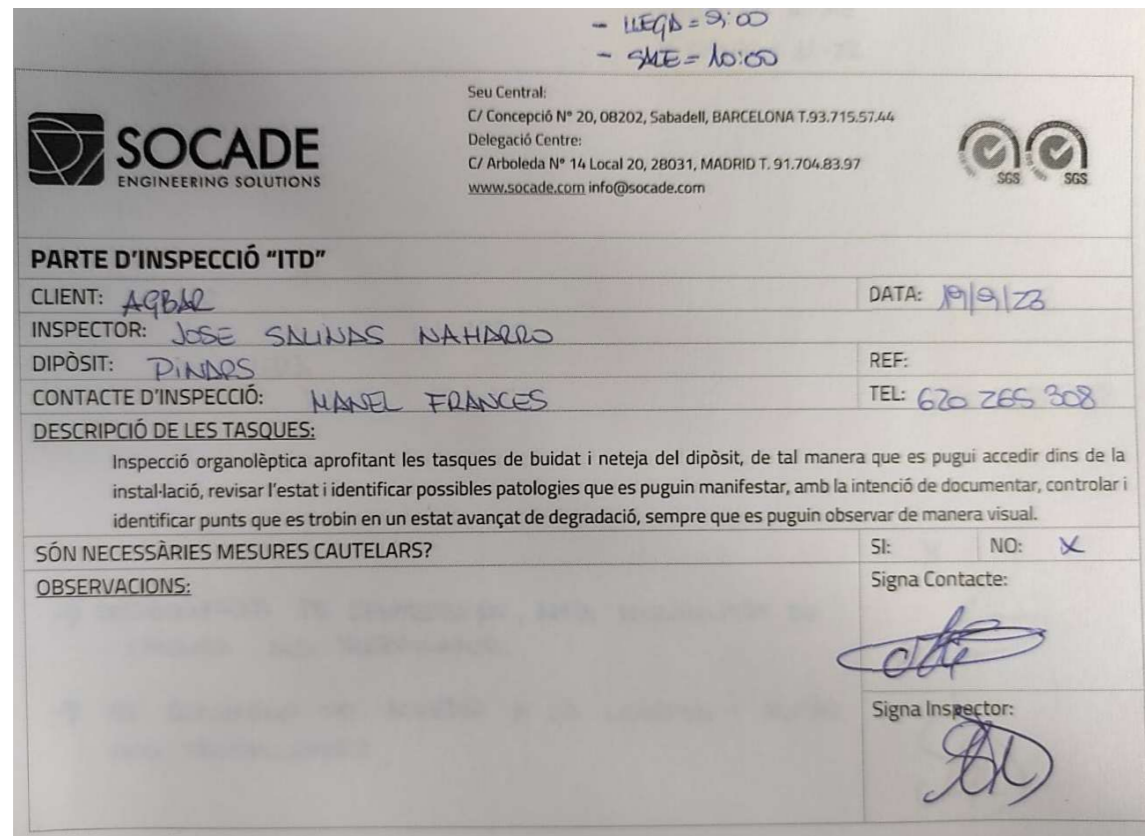 - LLEGA = 9:00
- SALE = 10:00
SOCADE
ENGINEERING SOLUTIONS
Seu Central:
C/ Concepció Nº 20, 08202, Sabadell, BARCELONA T.93.715.57.44
Delegació Centre:
C/ Arboleda Nº 14 Local 20, 28031, MADRID T. 91.704.83.97
www.socade.com info@socade.com
SGS SGS
PARTE D'INSPECCIÓ "ITD"
CLIENT: AGBAR DATA: 19/9/23
INSPECTOR: JOSE SALINAS NAHARRO
DIPÒSIT: PINARS REF:
CONTACTE D'INSPECCIÓ: MANEL FRANCES TEL: 620 265 308
DESCRIPCIÓ DE LES TASQUES:
Inspecció organolèptica aprofitant les tasques de buidat i neteja del dipòsit, de tal manera que es pugui accedir dins de la
instal·lació, revisar l'estat i identificar possibles patologies que es puguin manifestar, amb la intenció de documentar, controlar i
identificar punts que es trobin en un estat avançat de degradació, sempre que es puguin observar de manera visual.
SÓN NECESSÀRIES MESURES CAUTELARS? SI: NO: X
OBSERVACIONS: Signa Contacte:
Signa Inspector: